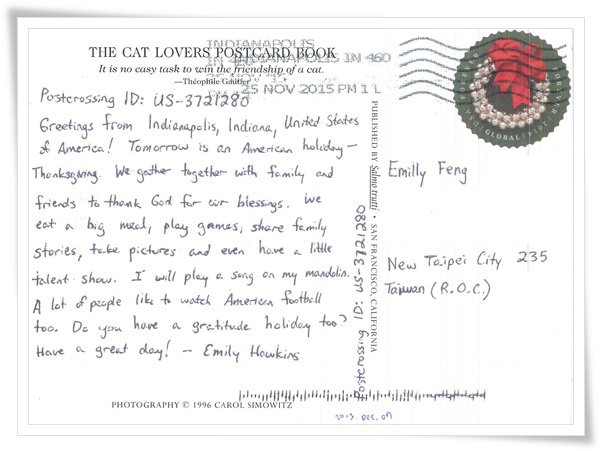 THE CAT LOVERS POSTCARD BOOK
It is no easy task to win the friendship of a cat.
—Théophile Gautier
INDIANAPOLIS
INDIANAPOLIS IN 460
25 NOV 2015 PM 1 L
Postcrossing ID: US-3721280
Greetings from Indianapolis, Indiana, United States
of America! Tomorrow is an American holiday—
Thanksgiving. We gather together with family and
friends to thank God for our blessings. We
eat a big meal, play games, share family
stories, take pictures and even have a little
talent show. I will play a song on my mandolin.
A lot of people like to watch American football
too. Do you have a gratitude holiday too?
Have a great day! - Emily Hawkins
PHOTOGRAPHY © 1996 CAROL SIMOWITZ
Postcrossing ID: US-3721280
PUBLISHED BY Salmo trutti • SAN FRANCISCO, CALIFORNIA
GLOBAL
Emilly Feng
New Taipei City 235
Taiwan (R.O.C.)
2015. DEC. 07